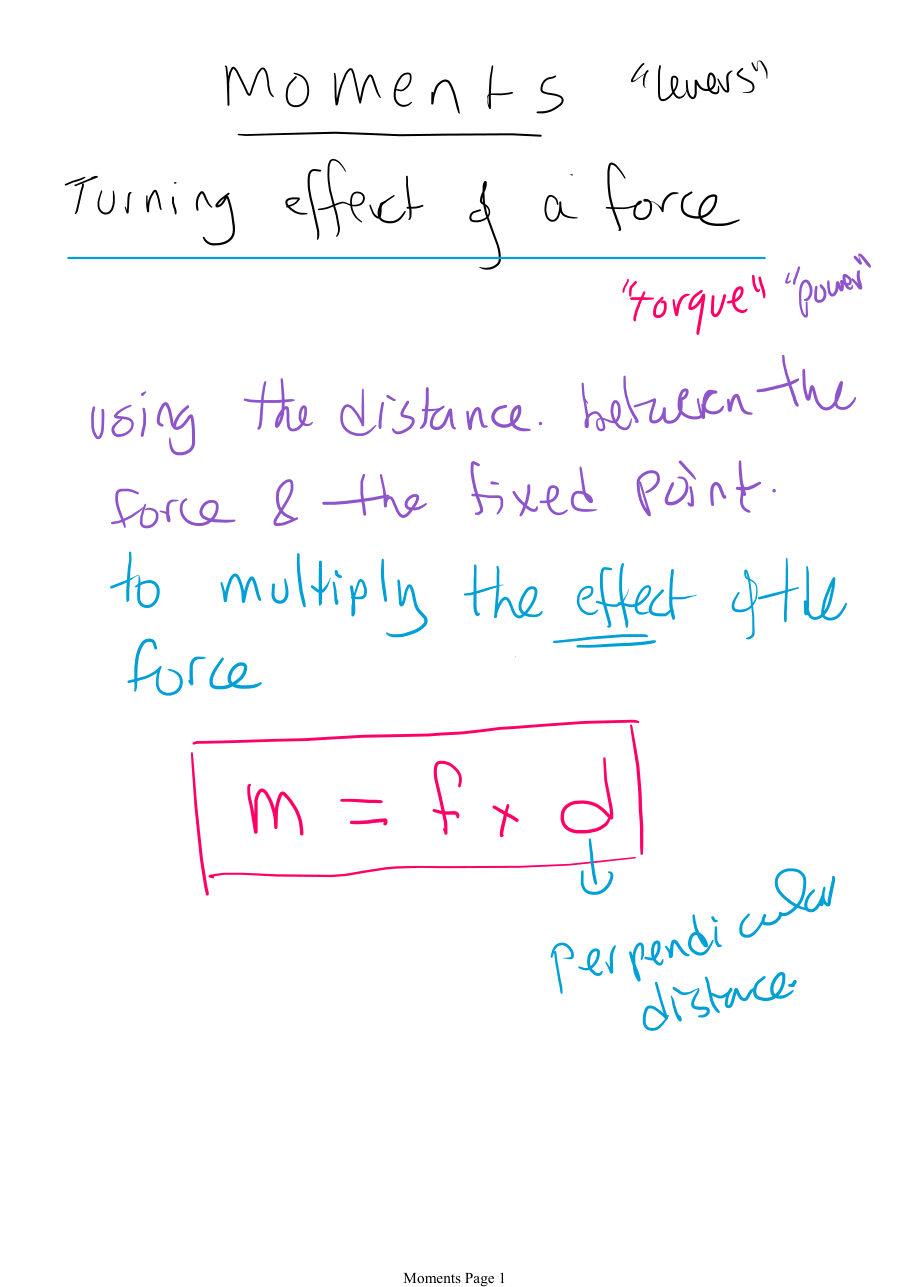 Moments "levers"
Turning effect of a force
"torque" "power"
using the distance. between the
force & the fixed point.
to multiply the effect of the
force
m = f × d
perpendicular
distance.
Moments Page 1